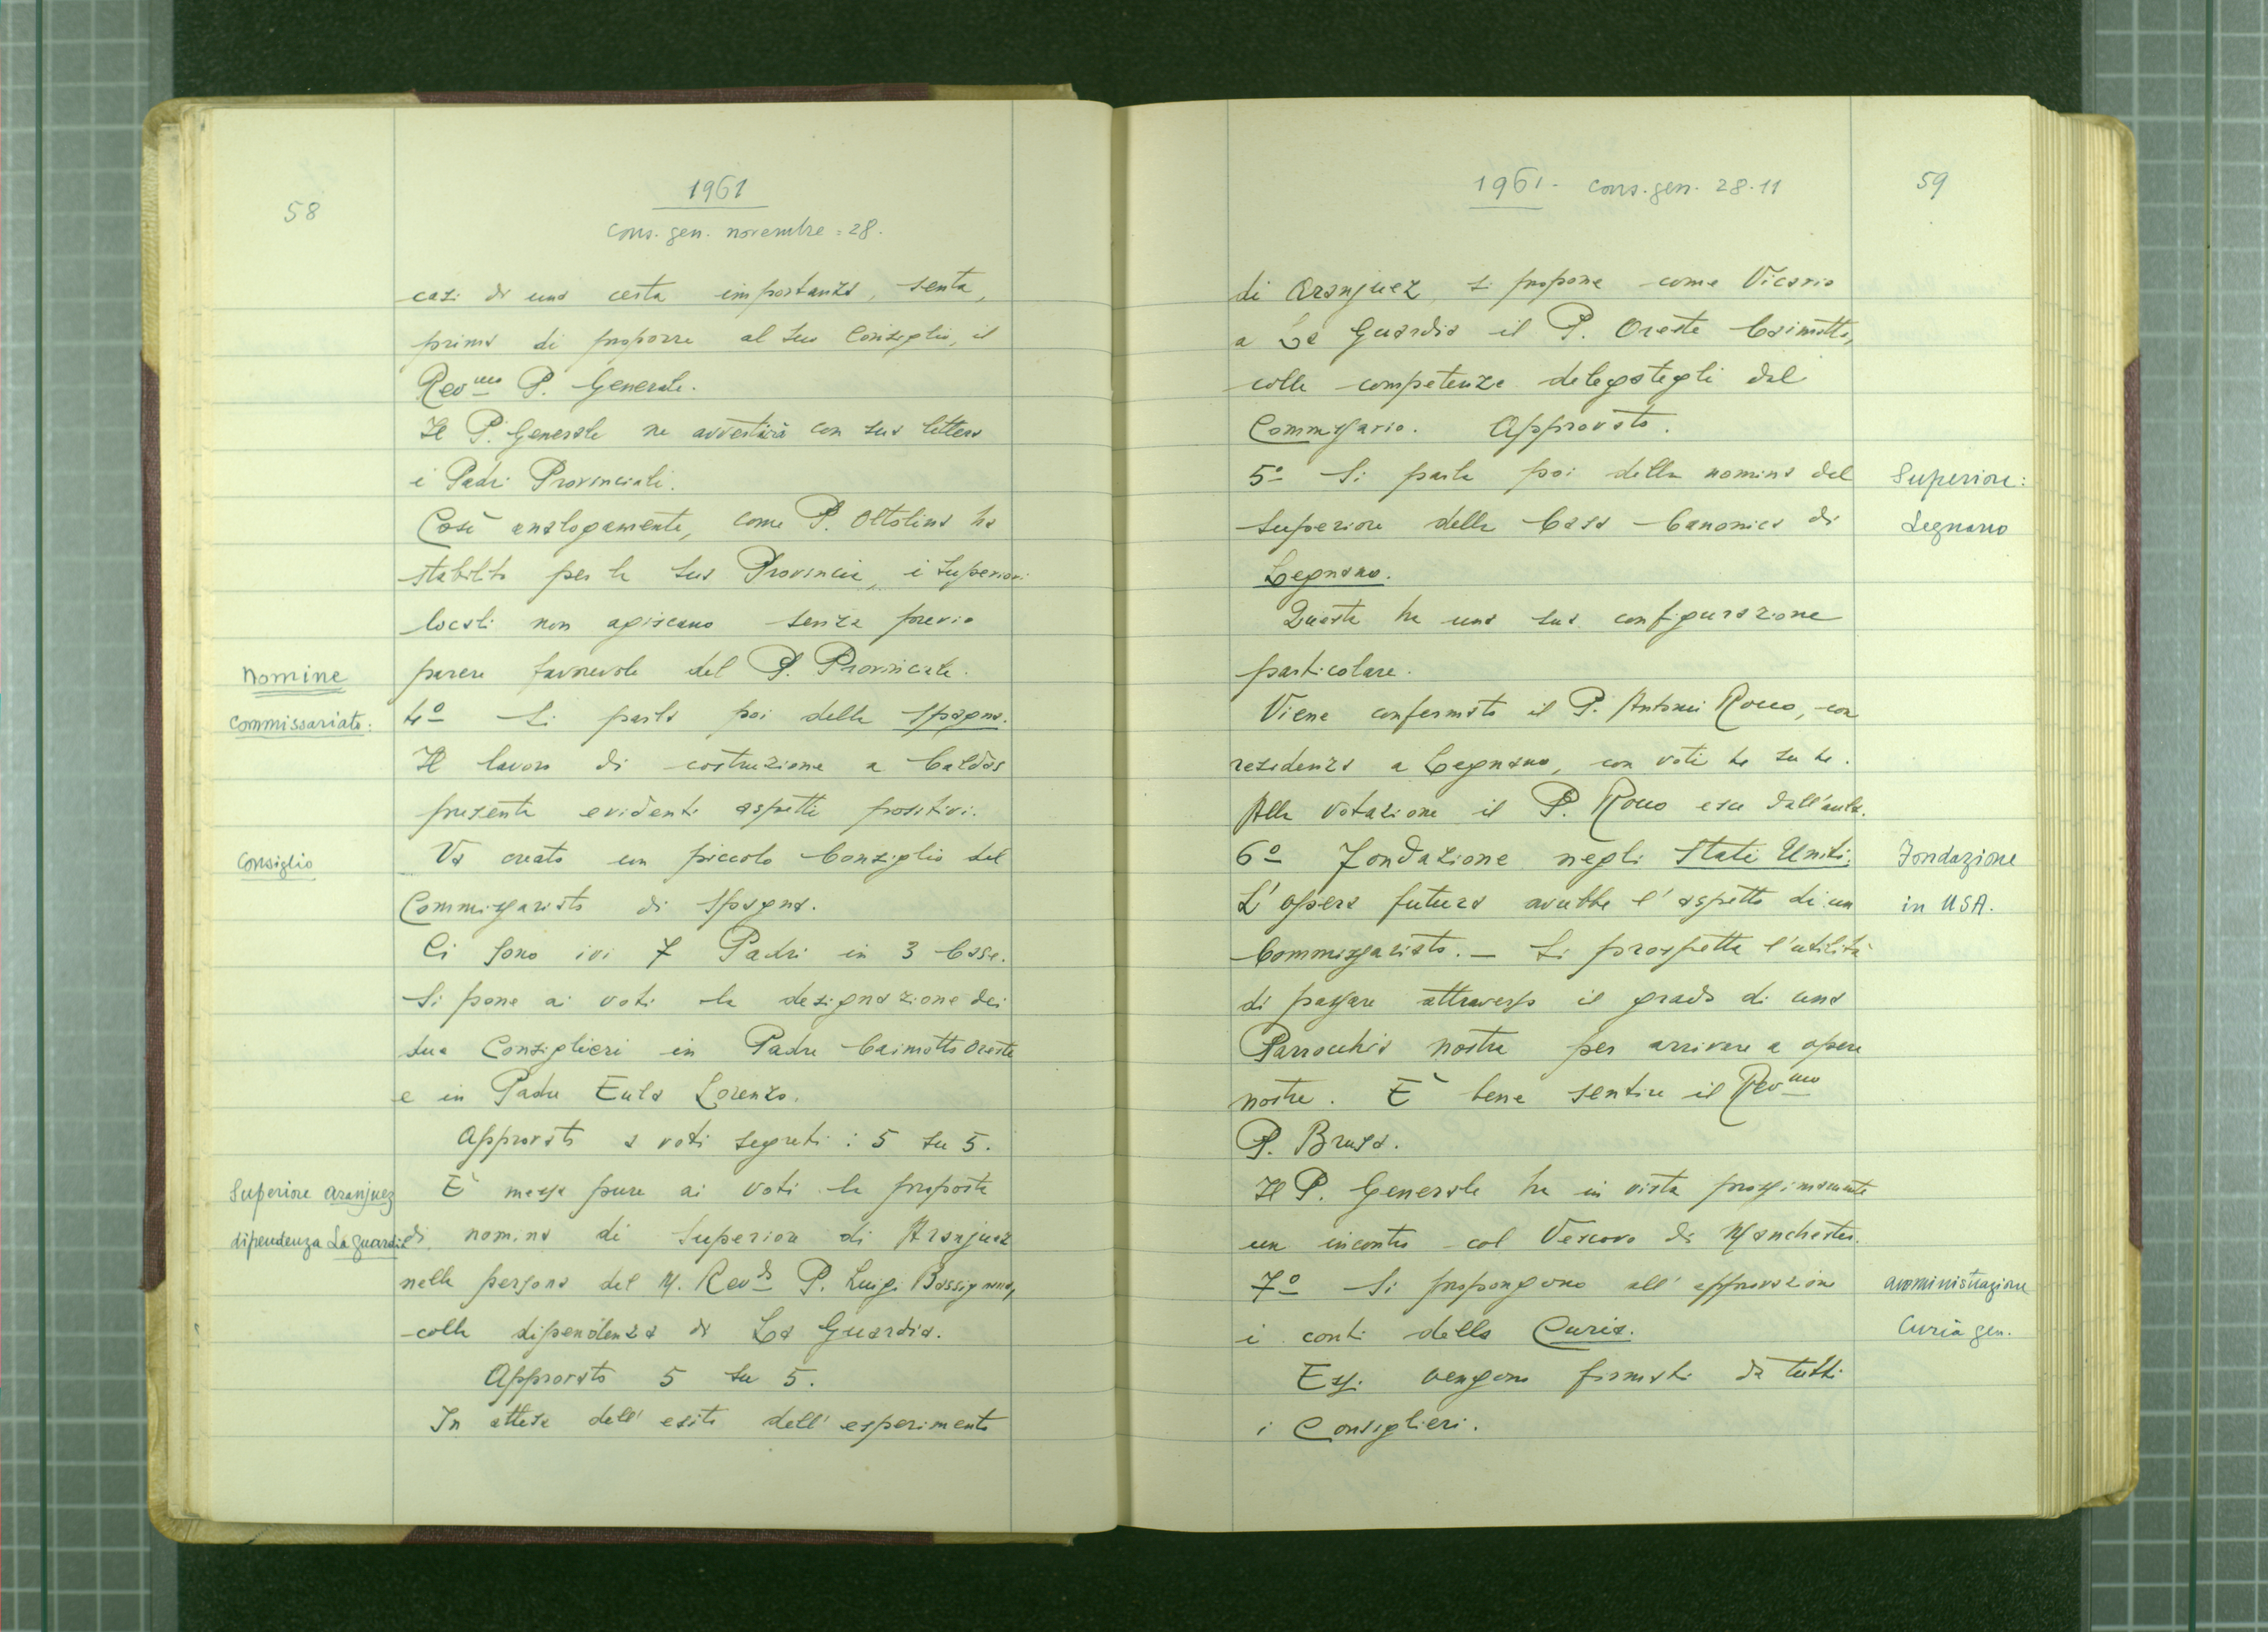 58
1961
cons. gen. novembre = 28.
casi di una certa importanza, senta,
prima di proporre al suo Consiglio, il
Rev.mo P. Generale.
Il P. Generale ne avvertirà con sua lettera
i Padri Provinciali.
Così analogamente, come P. Ottolina ha
stabilito per la sua Provincia, i Superiori
locali non agiscano senza previo
parere favorevole del P. Provinciale.
Nomine
commissariato:
4º Si parla poi della Spagna.
Il lavoro di costruzione a Caldas
presenta evidenti aspetti positivi.
Consiglio
Va creato un piccolo Consiglio del
Commissariato di Spagna.
Ci sono ivi 7 Padri in 3 Case.
Si pone ai voti la designazione dei
due Consiglieri in Padre Caimotto Oreste
e in Padre Eula Lorenzo.
Approvato a voti segreti: 5 su 5.
Superiore Aranjuez
dipendenza La Guardia
È messa pure ai voti la proposta
di nomina di Superiore di Aranjuez
nella persona del M. Rev.do P. Luigi Bassignana,
colla dipendenza di La Guardia.
Approvato 5 su 5.
In attesa dell'esito dell'esperimento
1961 - cons. gen. 28.11
59
di Aranjuez, si propone come Vicario
a La Guardia il P. Oreste Caimotto,
colle competenze delegategli dal
Commissario. Approvato.
5º Si parla poi della nomina del
Superiore della Casa Canonica di
Legnano.
Superiore:
Legnano
Questa ha una sua configurazione
particolare.
Viene confermato il P. Antonio Rocco, con
residenza a Legnano, con voti 4 su 4.
Alla votazione il P. Rocco esce dall'aula.
6º Fondazione negli Stati Uniti.
Fondazione
in USA.
L'opera futura avrebbe l'aspetto di un
Commissariato. - Si prospetta l'utilità
di passare attraverso il grado di una
Parrocchia nostra per arrivare a opere
nostre. È bene sentire il Rev.mo
P. Brusa.
Il P. Generale ha in vista prossimamente
un incontro col Vescovo di Manchester.
7º Si propongono all'approvazione
i conti della Curia.
amministrazione
Curia gen.
Essi vengono firmati da tutti
i Consiglieri.